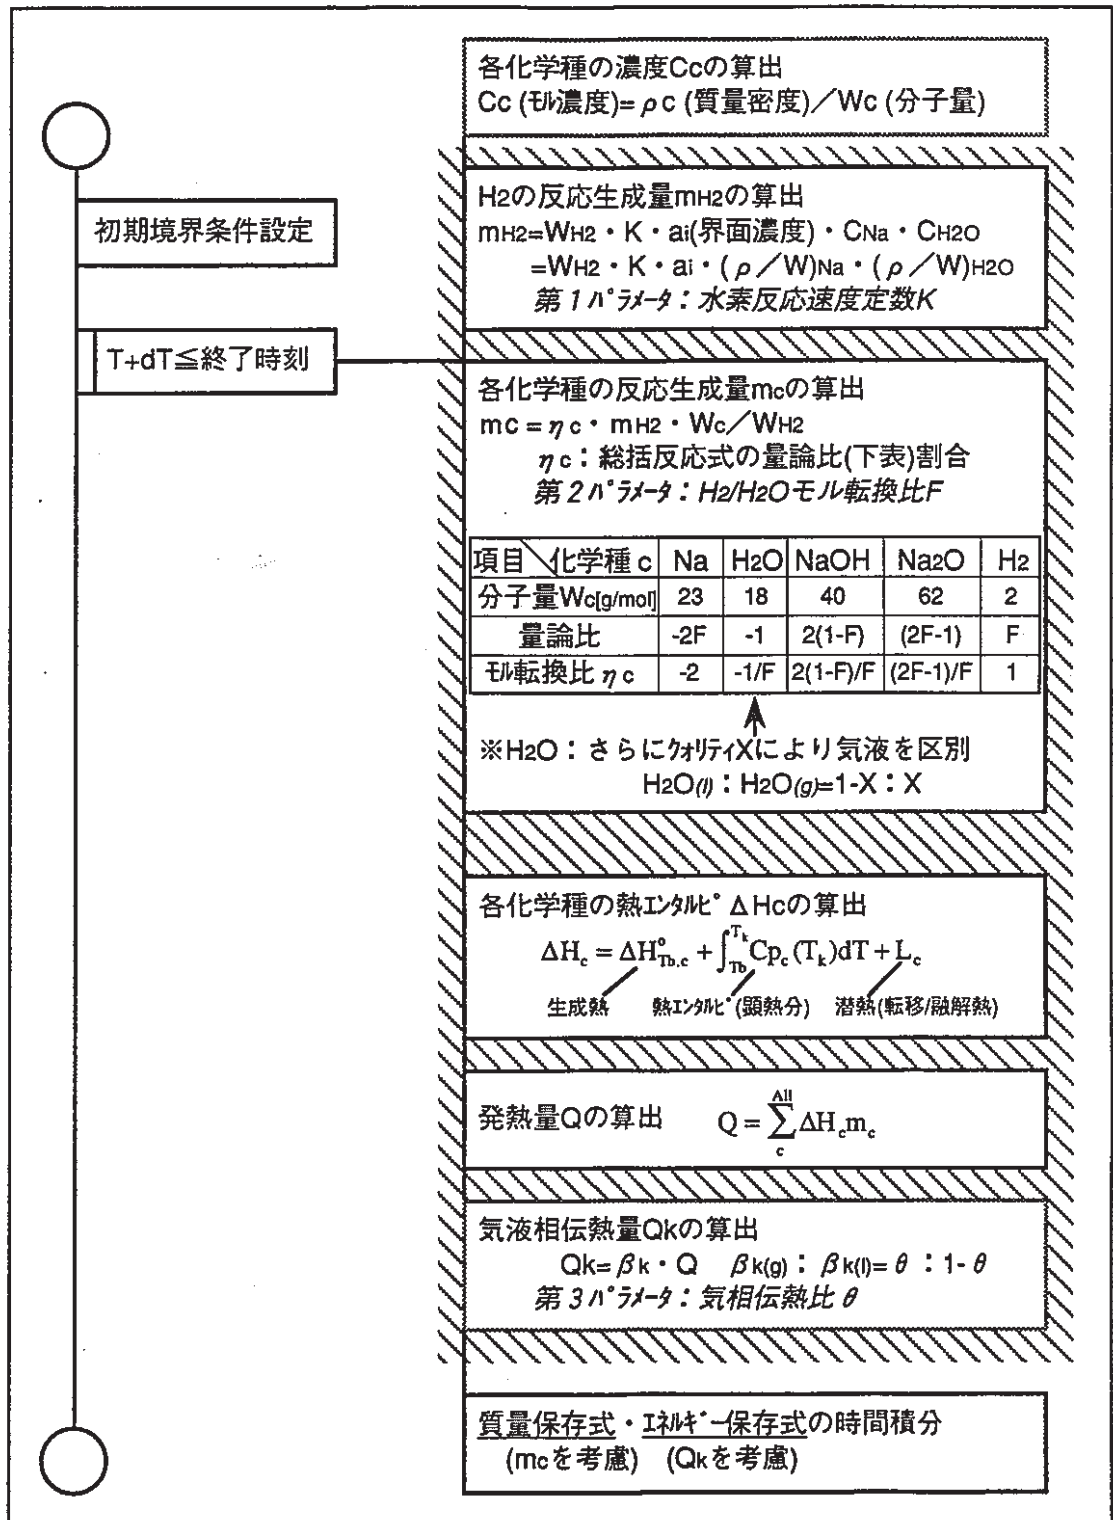 各化学種の濃度Ccの算出
Cc (ﾓﾙ濃度)= ρc (質量密度)／Wc (分子量)
初期境界条件設定
H2の反応生成量mH2の算出
mH2=WH2・K・ai(界面濃度)・CNa・CH2O
=WH2・K・ai・(ρ／W)Na・(ρ／W)H2O
第1ﾊﾟﾗﾒｰﾀ：水素反応速度定数K
T+dT≦終了時刻
各化学種の反応生成量mcの算出
mc = ηc・mH2・Wc／WH2
ηc：総括反応式の量論比(下表)割合
第2ﾊﾟﾗﾒｰﾀ：H2/H2Oモル転換比F
項目 化学種 c Na H2O NaOH Na2O H2
分子量Wc[g/mol] 23 18 40 62 2
量論比 -2F -1 2(1-F) (2F-1) F
ﾓﾙ転換比 ηc -2 -1/F 2(1-F)/F (2F-1)/F 1
※H2O：さらにｸｫﾘﾃｨXにより気液を区別
H2O(l)：H2O(g)=1-X：X
各化学種の熱ｴﾝﾀﾙﾋﾟΔHcの算出
ΔHc = ΔH°Tb,c + ∫TbTk Cpc (Tk)dT + Lc
生成熱 熱ｴﾝﾀﾙﾋﾟ(顕熱分) 潜熱(転移/融解熱)
発熱量Qの算出 Q = ΣcAll ΔHc mc
気液相伝熱量Qkの算出
Qk= βk・Q βk(g)：βk(l)= θ：1- θ
第3ﾊﾟﾗﾒｰﾀ：気相伝熱比θ
質量保存式・ｴﾈﾙｷﾞｰ保存式の時間積分
(mcを考慮) (Qkを考慮)